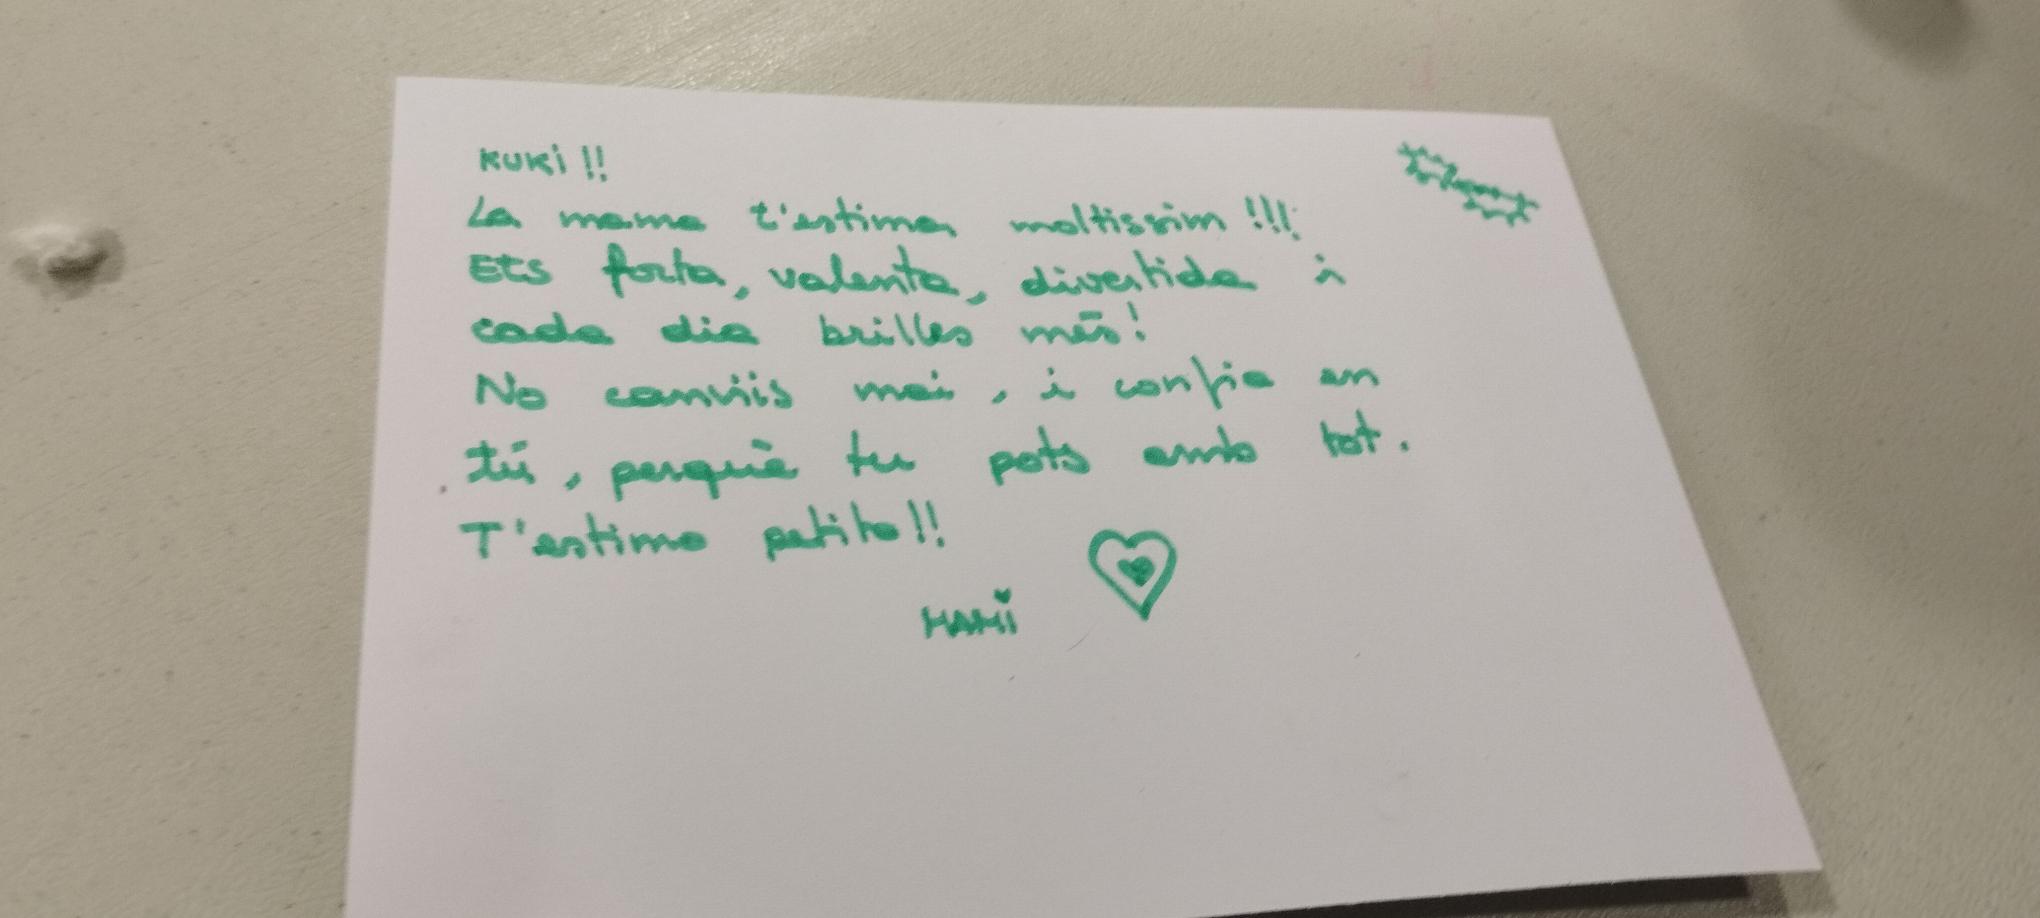 KUKi !!
La mama t'estima moltissim !!!
Ets forta, valenta, divertida i
cada dia brilles més!
No canviis mai, i confia en
tú, perquè tu pots amb tot.
T'estimo petita!!
MAMi